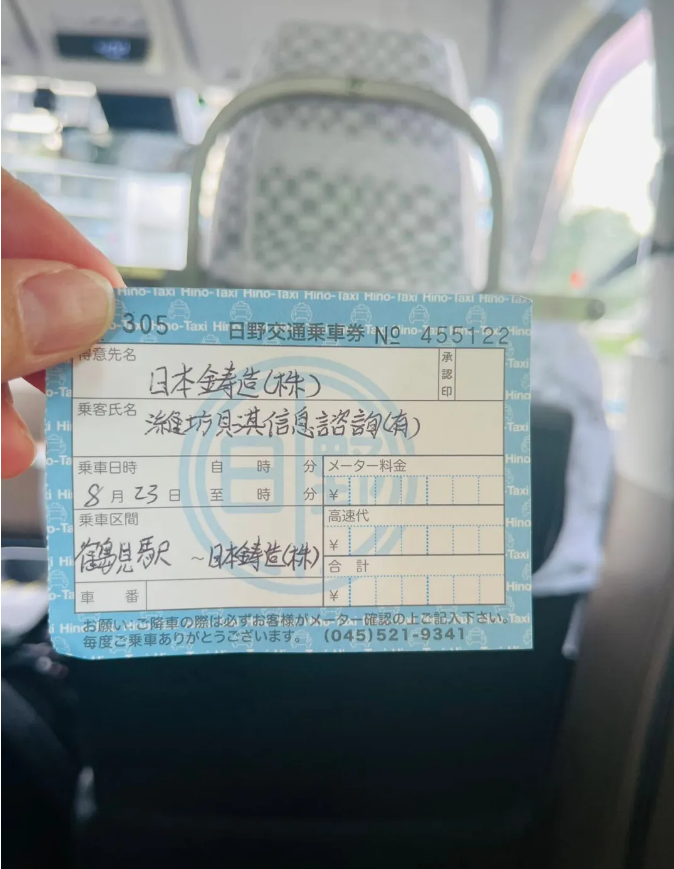 Hino-Taxi Hino-Taxi Hino-Taxi Hino-Taxi Hino-Taxi Hino-Taxi
305 日野交通乗車券 № 455122
得意先名 日本鋳造(株) 承認印
乗客氏名 濰坊貝淇信息諮詢(有)
乗車日時 自 時 分 メーター料金
8月23日 至 時 分 ¥
乗車区間 高速代
鶴見駅 ~日本鋳造(株) ¥
合計
車番 ¥
お願い:ご降車の際は必ずお客様がメーター確認の上ご記入下さい。
毎度ご乗車ありがとうございます。 (045)521-9341